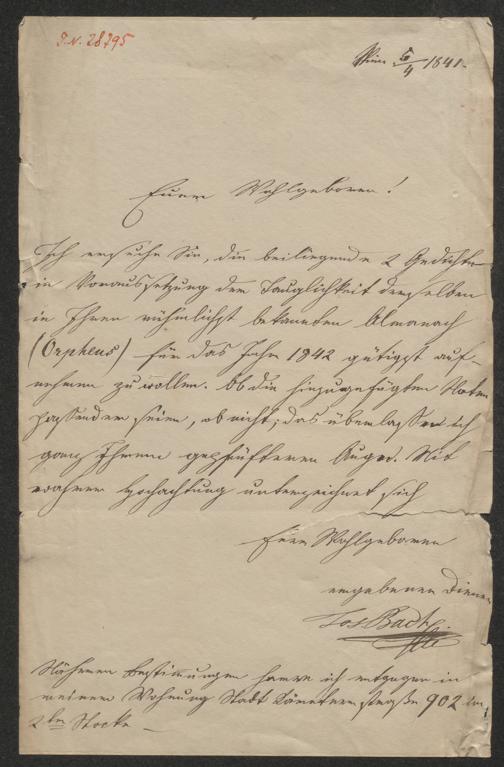 I.N. 28795
Wien 6/4 1841.
Euer Wohlgeboren!
Ich ersuche Sie, die beiliegende 2 Gedichte
in Voraussetzung der Tauglichkeit derselben
in Ihren rühmlichst bekannten Almanach
(Orpheus) für das Jahr 1842 gütigst auf-
nehmen zu wollen. Ob die hinzugefügten Noten
passender seien, ob nicht; das überlasse ich
ganz Ihrem Auge. Mit
wahrer Hochachtung unterzeichnet sich
Euer Wohlgeboren
ergebener Diener
Jos Bach
Nähere Bestimmungen ich entgegen in
meiner Wohnung Stadt Kärntnerstraße 902 im
2ten Stocke